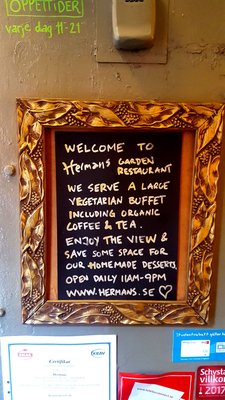 ÖPPETTIDER
varje dag 11-21
WELCOME TO
Hermans GARDEN
RESTAURANT
WE SERVE A LARGE
VEGETARIAN BUFFET
INCLUDING ORGANIC
COFFEE & TEA.
ENJOY THE VIEW &
SAVE SOME SPACE FOR
OUR HOMEMADE DESSERTS
OPEN DAILY 11AM-9PM
WWW.HERMANS.SE ♡
KRAV
Certifikat
Schysta
villkor
2017